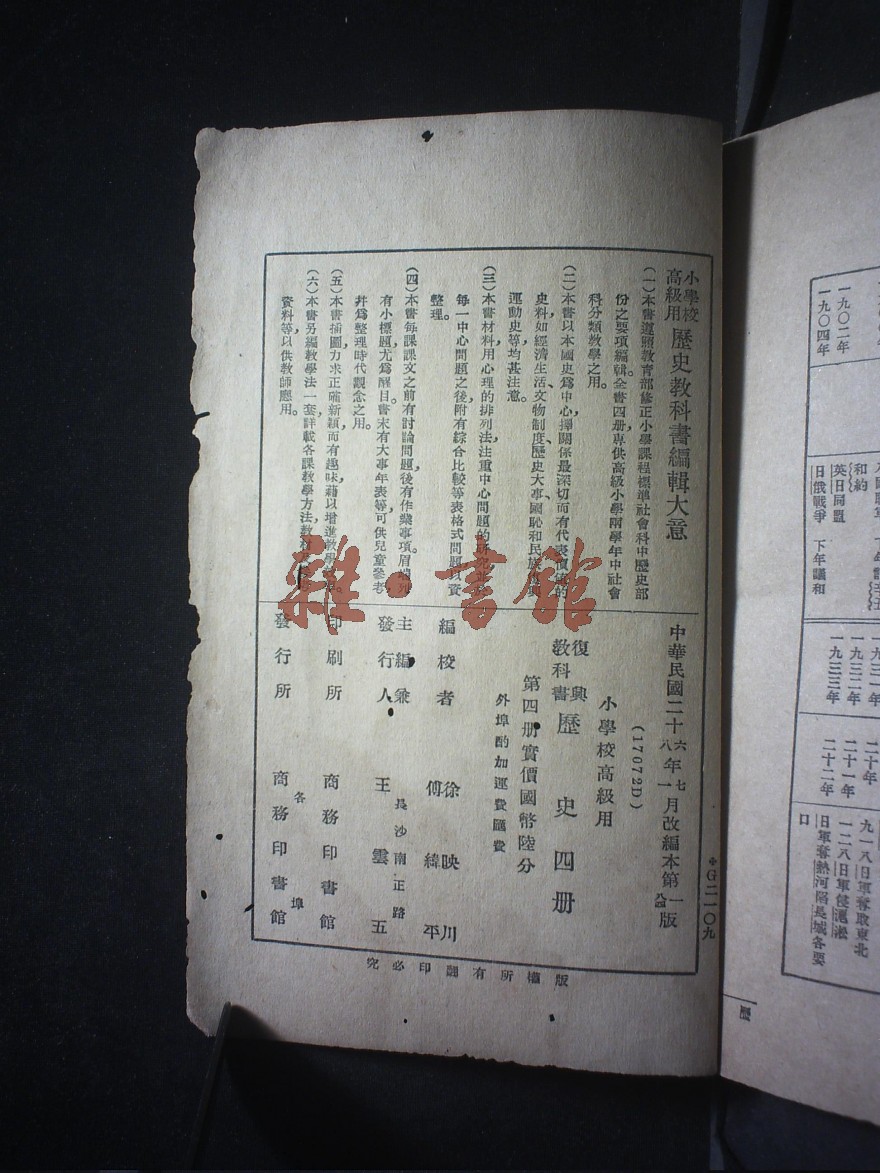 小學校高級用 歷史教科書編輯大意
(一)本書遵照教育部修正小學課程標準社會科中歷史部
份之要項編輯全書四册專供高級小學兩學年中社會
科分類教學之用。
(二)本書以本國史爲中心擇關係最深切而有代表價值的
史料如經濟生活、文物制度、歷史大事、國恥和民族復興
運動史等均甚注意。
(三)本書材料用心理的排列法注重中心問題的研究並於
每一中心問題之後附有綜合比較等表格式問題以資
整理。
(四)本書每課課文之前有討論問題後有作業事項。眉端列
有小標題尤爲醒目書末有大事年表等可供兒童參考
幷爲整理時代觀念之用。
(五)本書插圖力求正確新穎而有趣味藉以增進教學
(六)本書另編教學法一套詳載各課教學方法教材
資料等以供教師應用。
中華民國二十六年七月改編本第一版
八 一
(17072D)
小學校高級用
復興教科書 歷史 四册
第四册實價國幣陸分
外埠酌加運費匯費
編校者 徐映川 傅緯平
主編兼發行人 王雲五
長沙南正路
印刷所 商務印書館
發行所 各埠 商務印書館
版權所有翻印必究
G二一〇九
雜·書館
一九〇二年
一九〇四年
和約
英日同盟
日俄戰爭 下年議和
一九三一年
一九三二年
一九三三年
二十年
二十一年
二十二年
九一八日軍奪取東北
一二八日軍侵淞滬
日軍奪熱河陷長城各要
口
歷